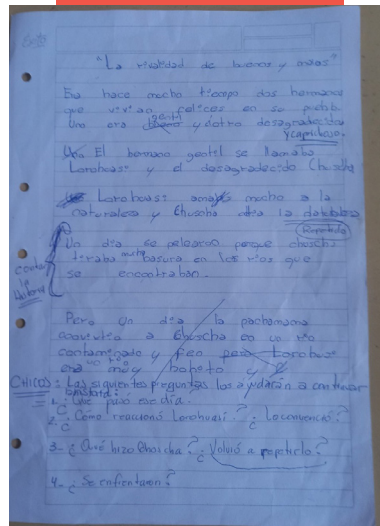 "La rivalidad de buenos y malos"
Era hace mucho tiempo dos hermanos
que vivían felices en su pueblo
Uno era gentil y el otro desagradecido
y caprichoso.
El hermano gentil se llamaba
Lorohuasi y el desagradecido Chuscha
Lorohuasi amaba mucho a la
naturaleza y Chuscha la
(Repetido)
Un día se pelearon porque chuscha
tiraba mucha basura en los ríos que
se encontraban.
Pero un día la pachamama
convirtió a Chuscha en un río
contaminado y Lorohuasi
era un río muy bonito y
CHICOS: Las siguientes preguntas los ayudarán a continuar
1- ¿Qué pasó ese día.
2- ¿Cómo reaccionó Lorohuasi? ¿Lo convenció?
3- ¿Qué hizo Chuscha? ¿Volvió a repetirlo?
4- ¿Se enfrentaron?